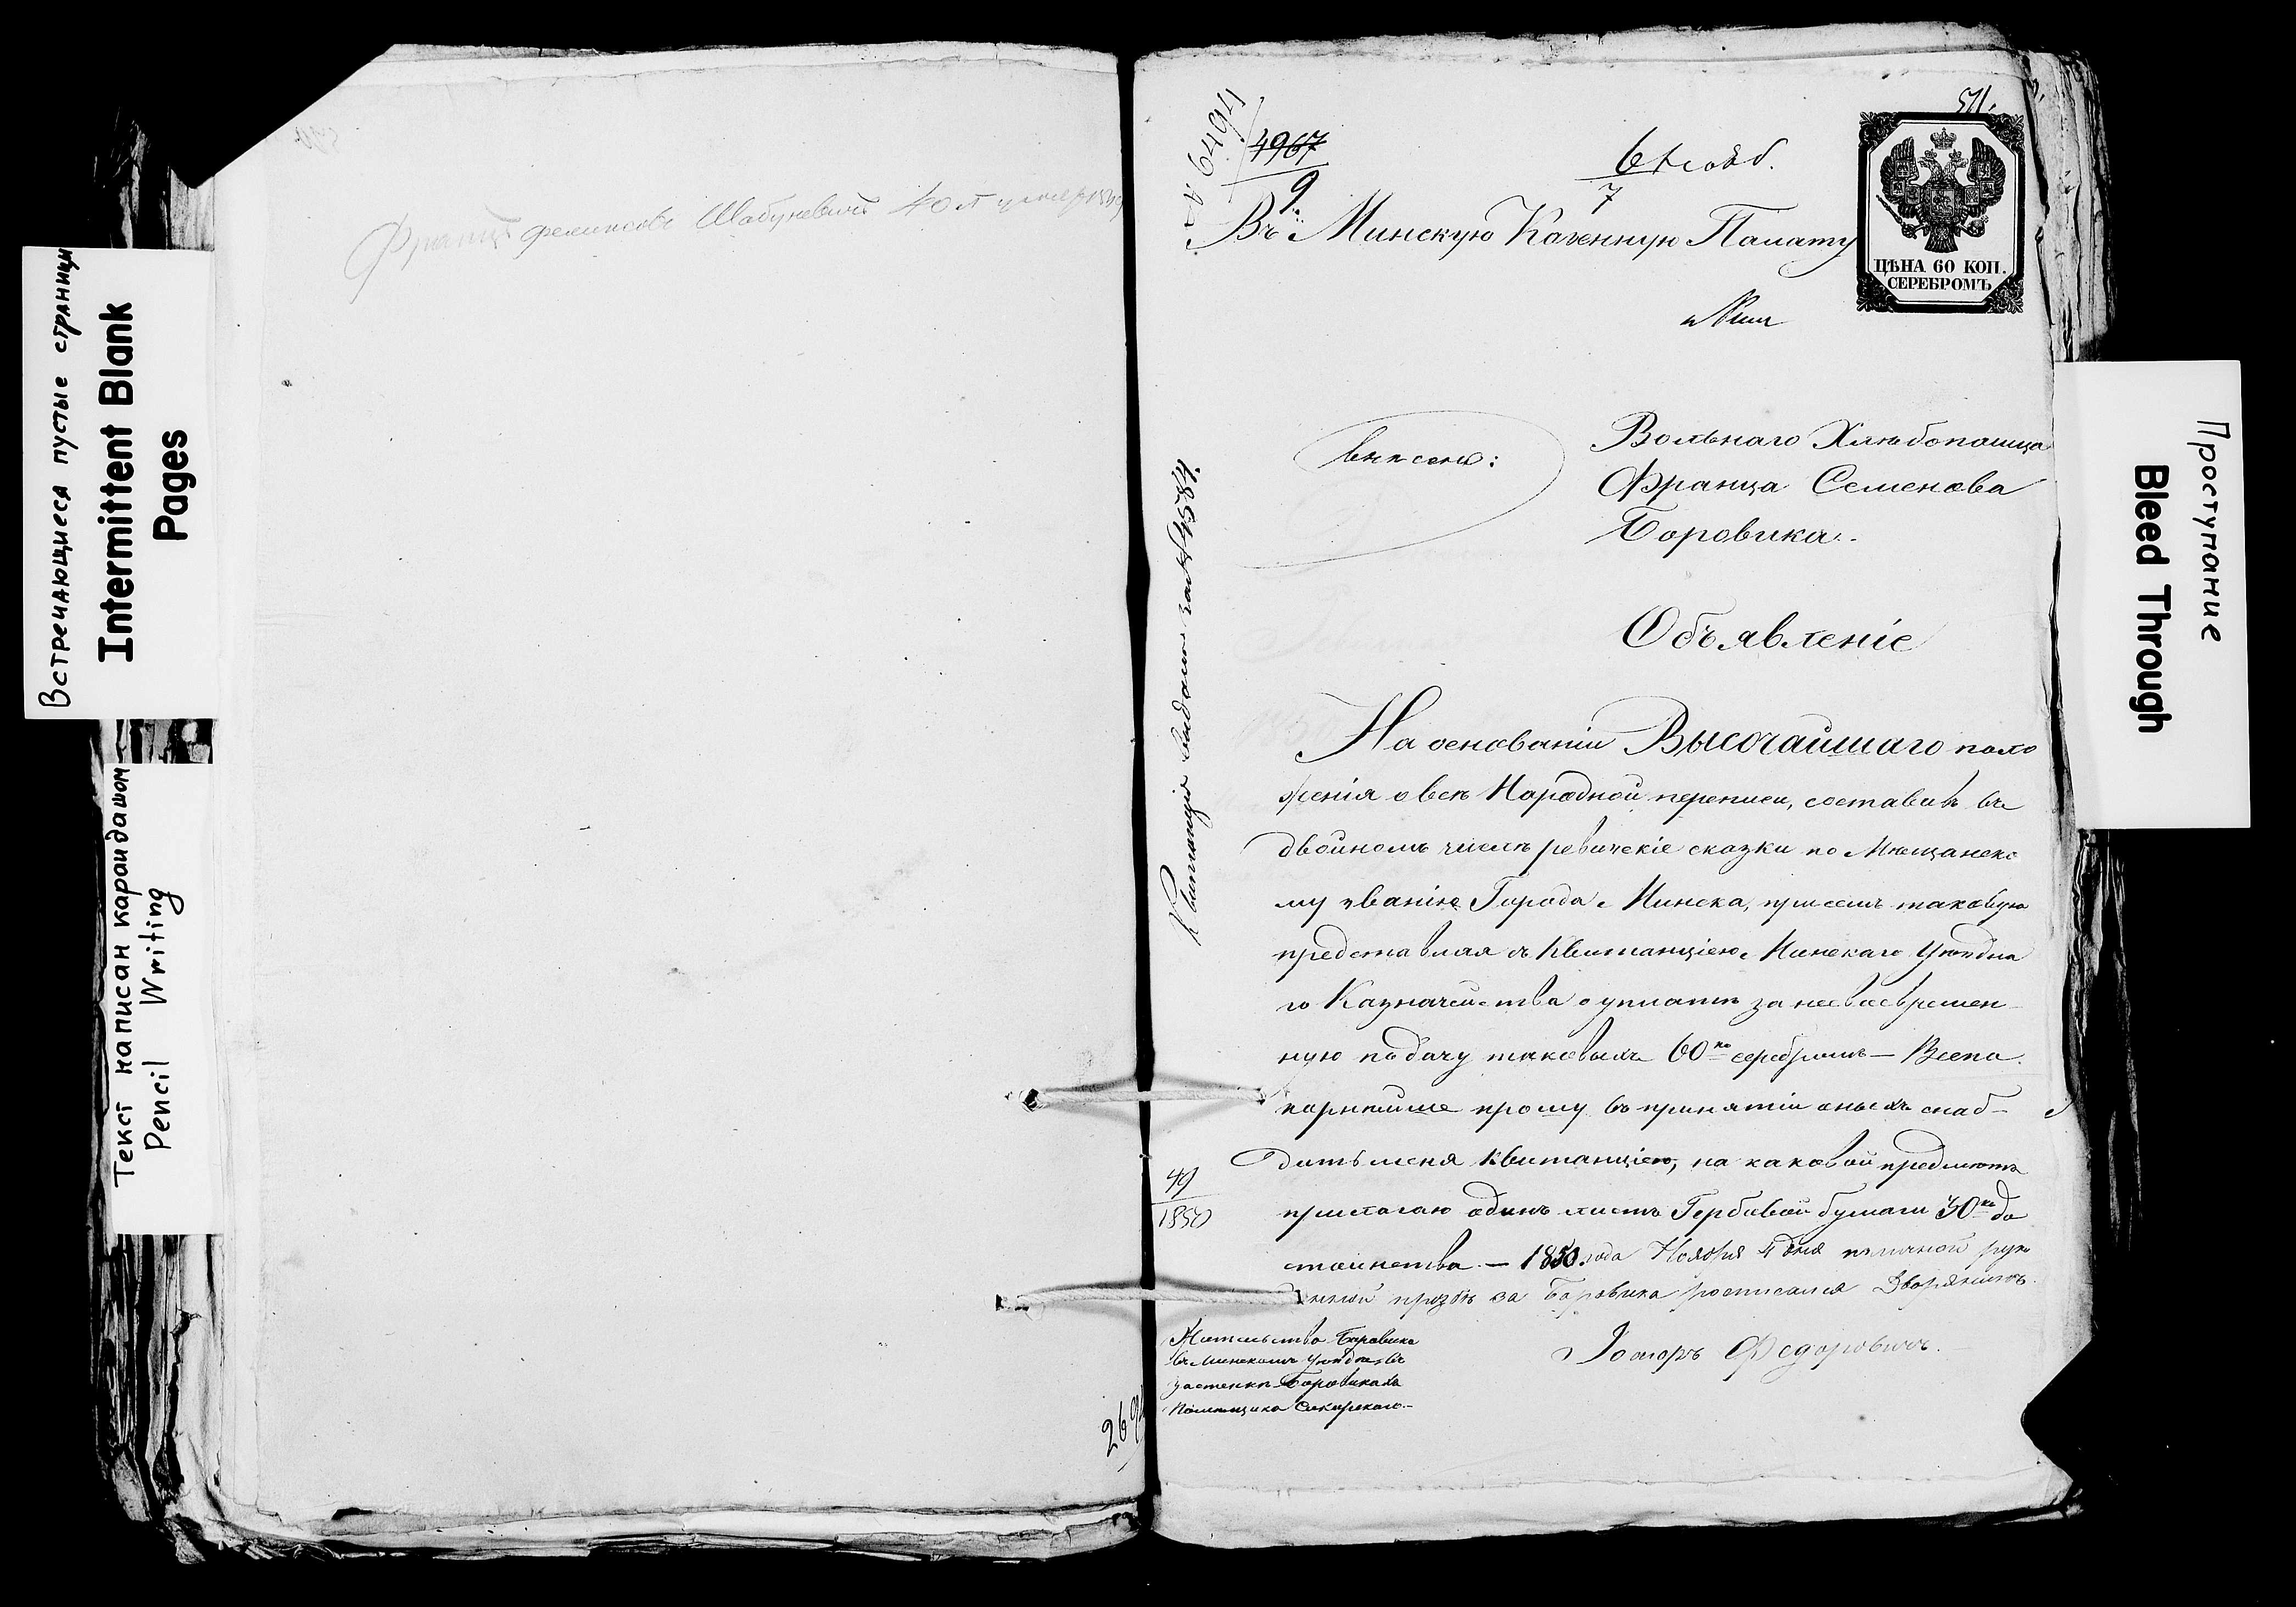 Встречающиеся пустые страницы
Intermittent Blank
Pages
Текст написан карандашом
Pencil Writing
Францъ Феликсовъ 40 л
269
571.
6494
4967
9
6 Нояб.
7
Въ Минскую Казенную Палату
ЦѢНА 60 КОП.
СЕРЕБРОМЪ
внесено:
Вольнаго Хлѣбопашца
Франца Семенова
Боровика.
Объявленіе
Квитанція выдана за № 4584.
На основаніи Высочайшаго поло
женія о всен Народной переписи, составивъ въ
двойномъ числѣ ревизскіе сказки по Мѣщанско
му званію Города Минска, при семъ таковую
представляя съ Квитанціею Минскаго Уѣздна
го Казначейства о уплатѣ за несвоевремен
ную подачу таковыхъ 60 ко серебромъ — Всепо
корнѣйше прошу въ принятіи оныхъ снаб-
дить меня квитанціею, на каковой предметъ
прилагаю одинъ листъ Гербовой бумаги 30 ко до
стоинства. — 1850 года Ноября 4 дня
прозбѣ за Боровика росписался Дворянинъ
Федоровичъ.
49
1850
Жительство Боровика
въ Минскомъ Уѣздѣ въ
застенкѣ Боровикахъ
Помѣщика Сикирскаго.—
Проступание
Bleed Through